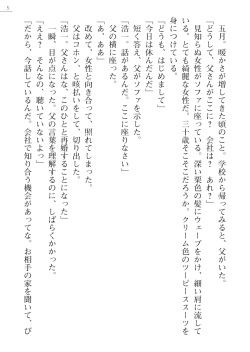 5
五月、暖かさが増してきた頃のこと、学校から帰ってみると、父がいた。
「どうして、父さんがここに？　会社は？　あれ？」
見知らぬ女性がソファに座っている。深い栗色の髪にウェーブをかけ、細い肩に流して
いる。とても綺麗な女性だ。三十歳そこそこだろうか。クリーム色のツーピーススーツを
身につけている。
「どうも、はじめまして」
「今日は休んだんだ」
短く答え、父がソファを示した。
「浩一、話があるんだ。ここに座りなさい」
「あ、ああ」
父の横に座った。
改めて、女性と向き合って、照れてしまった。
父はコホン、と咳払いをして、切り出した。
「浩一、父さんはな、このひとと再婚することになった」
一瞬、目が点になった。父の言葉を理解するのに、しばらくかかった。
「ええ？　そんなの、聴いていないよっ」
「だから、今話しているんだ。会社で知り合う機会があってな。お相手の家を聞いて、び